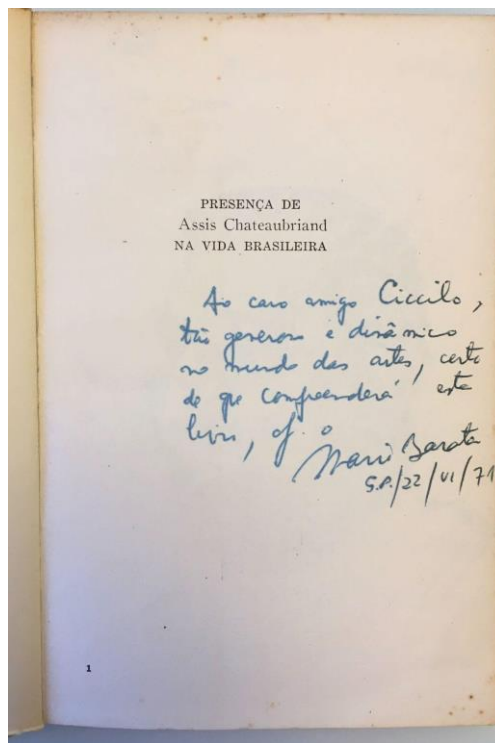 PRESENÇA DE
Assis Chateaubriand
NA VIDA BRASILEIRA
Ao caro amigo Ciccilo,
tão generoso e dinâmico
no mundo das artes, certo
de que compreenderá este
livro, of. o
Mario Barata
S.P./22/VI/71
1